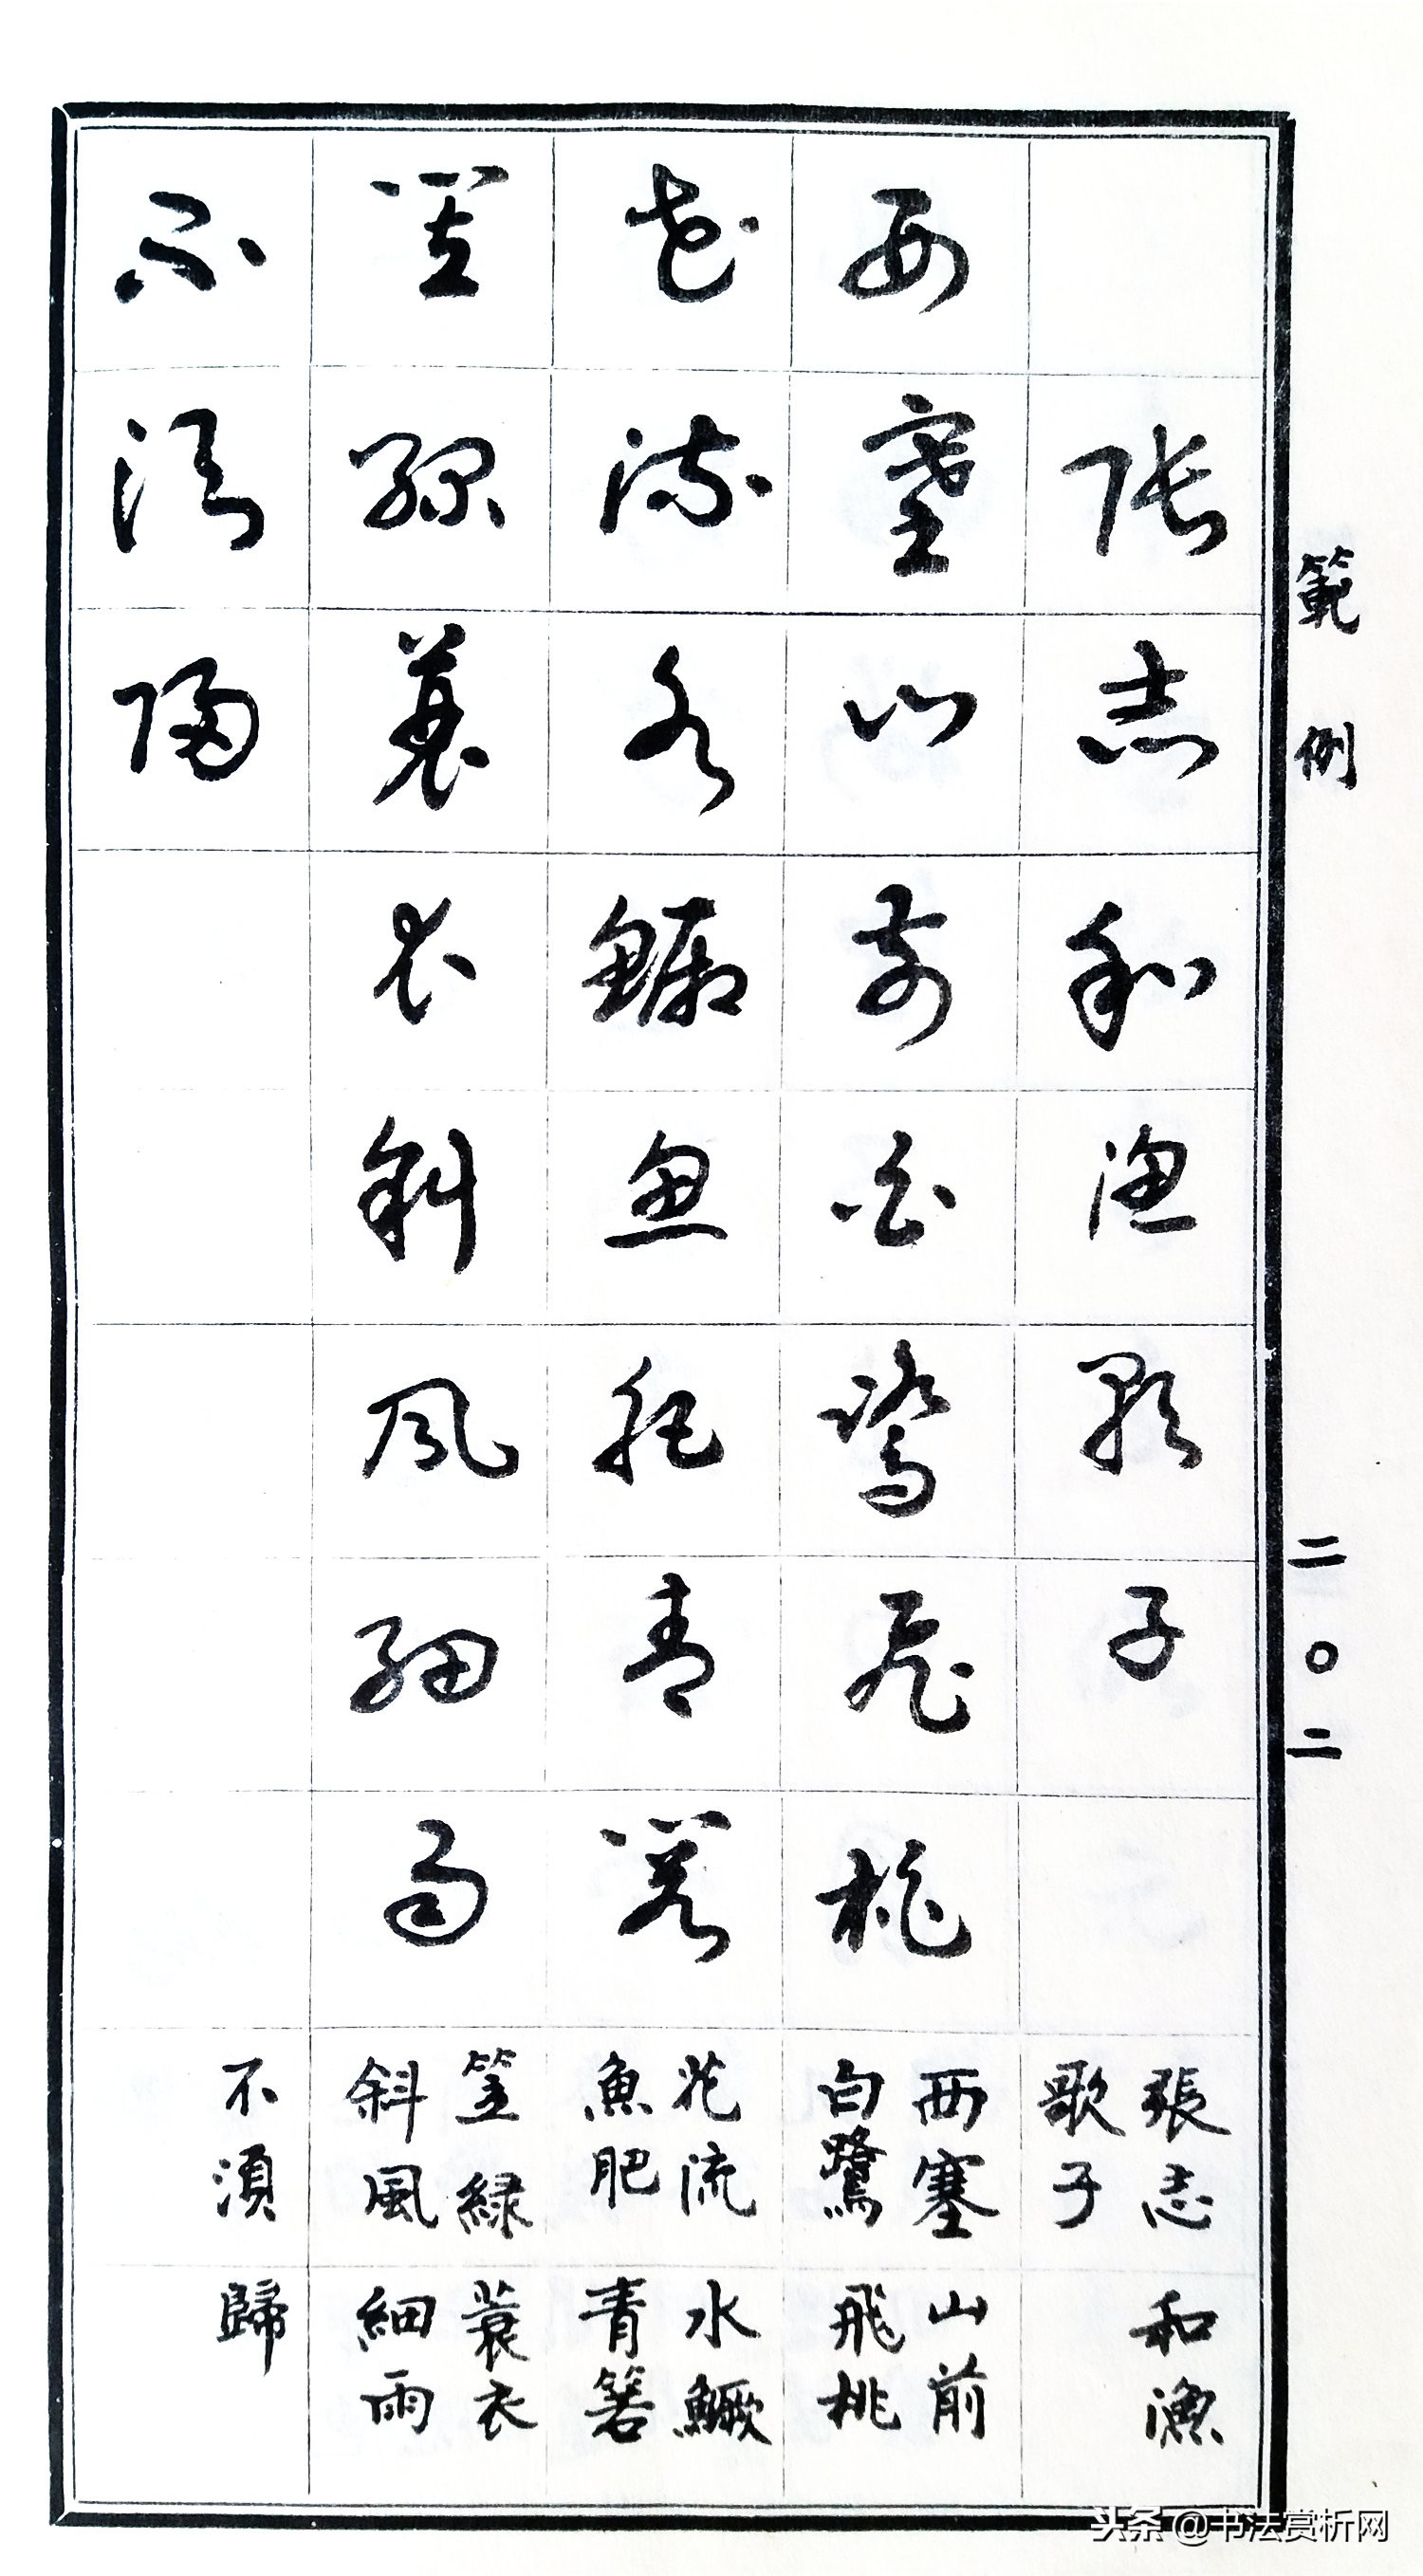 範例
二〇二
張志和漁歌子
西塞山前白鷺飛桃
花流水鱖魚肥青箬
笠綠蓑衣斜風細雨
不須歸
張志和漁
歌子
西塞山前
白鷺飛桃
花流水鱖
魚肥青箬
笠緑蓑衣
斜風細雨
不須歸
头条 @书法赏析网